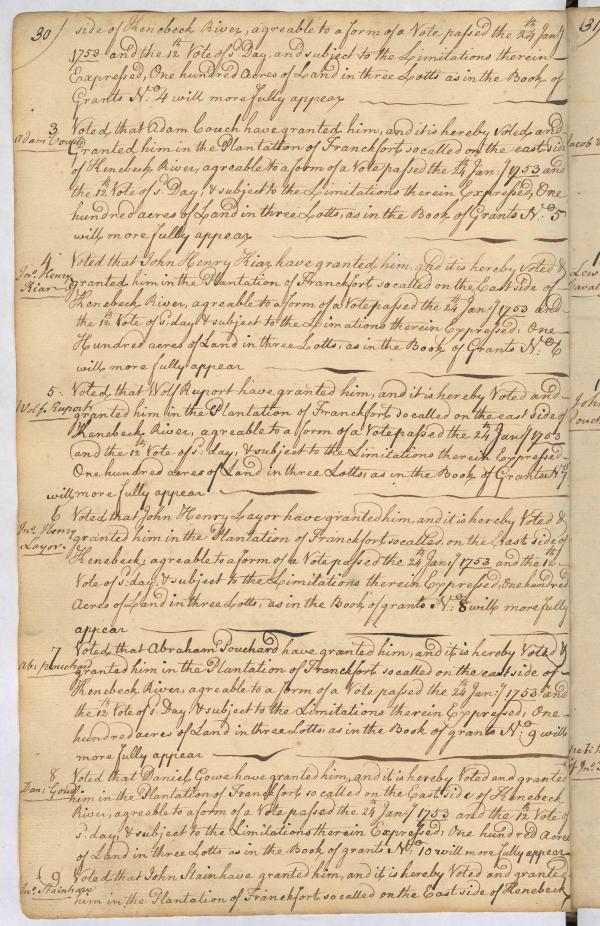 30/
side of Kenebeck River, agreable to a form of a Vote passed the 24th Jany
1753 and the 12th Vote of sd Day, and subject to the Limitations therein
Expressed, One hundred Acres of Land in three Lotts as in the Book of
Grants No. 4 will more fully appear
3
Adam Couch
Voted that Adam Couch have granted him, and it is hereby Voted and
Granted him in the Plantation of Franckfort so called on the east side
of Kenebeck River, agreable to a form of a Vote passed the 24th Jany 1753 and
the 12th Vote of sd Day, & subject to the Limitations therein Expressed, One
hundred acres of Land in three Lotts, as in the Book of Grants No. 5
will more fully appear
4
Jno. Henry
Kiar
Voted that John Henry Kiar have granted him, and it is hereby Voted &
granted him in the Plantation of Franckfort so called on the East side of
Kenebeck River, agreable to a form of a Vote passed the 24th Jany 1753 and
the 12th Vote of sd day & subject to the Limations therein Expressed, One
Hundred acres of Land in three Lotts, as in the Book of Grants No. 6
will more fully appear
5
Wolf Ruport
Voted that Wolf Ruport have granted him, and it is hereby Voted and
granted him in the Plantation of Franckfort so called on the east side of
Kenebeck River, agreable to a form of a Vote passed the 24th Jany 1753
and the 12th Vote of sd day, & subject to the Limitations therein Expressed
One hundred acres of Land in three Lotts, as in the Book of Grants No. 7
will more fully appear
6
Jno. Henry
Layor
Voted that John Henry Layor have granted him, and it is hereby Voted &
granted him in the Plantation of Franckfort so called, on the East side of
Kenebeck, agreable to a form of a Vote passed the 24th Jany 1753 and the 12th
Vote of sd day, & subject to the Limitations therein Expressed, One hundred
Acres of Land in three Lotts, as in the Book of grants No. 8 will more fully
appear
7
Abr. Pouchard
Voted that Abraham Pouchard have granted him, and it is hereby Voted &
granted him in the Plantation of Franckfort so called on the east side of
Kenebeck River, agreable to a form of a Vote passed the 24th Jany 1753 and
the 12th Vote of sd Day, & subject to the Limitations therein Expressed, One
hundred acres of Land in three Lotts, as in the Book of grants No. 9 will
more fully appear
8
Dan: Gowe
Voted that Daniel Gowe have granted him, and it is hereby Voted and granted
him in the Plantation of Franckfort so called on the East side of Kenebeck
River, agreable to a form of a Vote passed the 24th Jany 1753 and the 12th Vote of
sd day, & subject to the Limitations therein Expressed, One hundred Acres
of Land in three Lotts as in the Book of grants No. 10 will more fully appear
9
Jno. Stainhave
Voted that John Stainhave granted him, and it is hereby Voted and granted
him in the Plantation of Franckfort so called on the East side of Kenebeck
31
Jacob
Lew
Daval
John